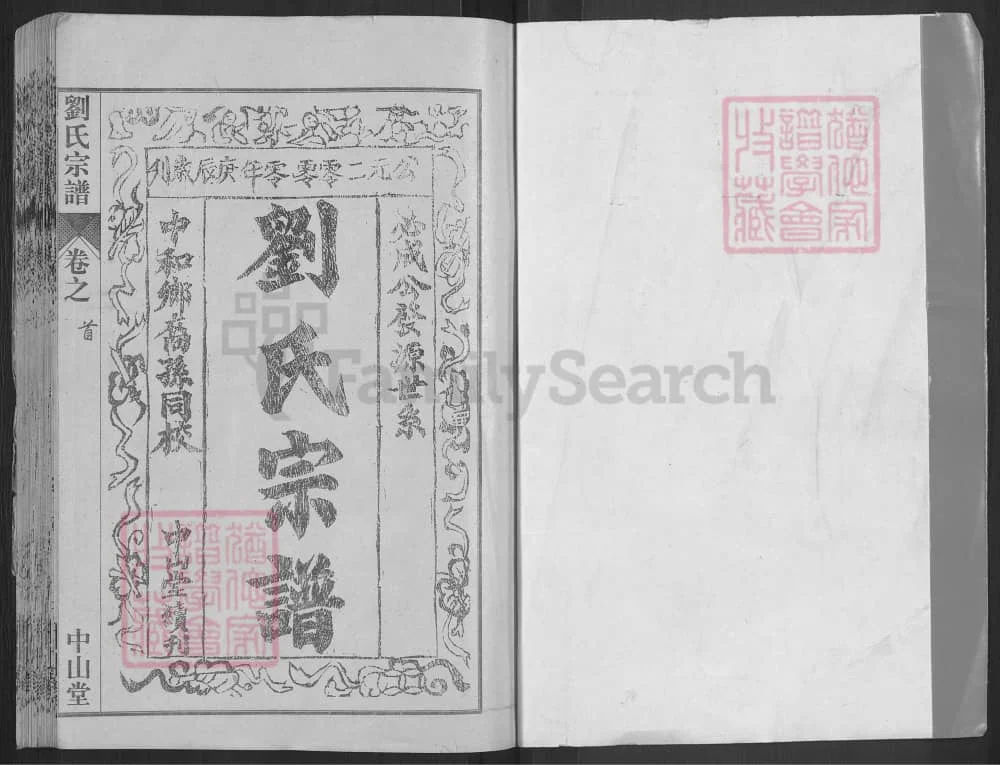 公元二零零零年庚辰歲刊
必成公發源世系
劉氏宗譜
中和鄉裔孫同校
中山堂續刊
劉氏宗譜
卷之
首
中山堂
猶他家
譜學會
收藏
猶他家
譜學會
收藏
FamilySearch